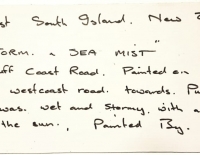 st South Island. New
TORM. & SEA MIST"
ff Coast Road. Painted on
westcoast road. towards. Pu
was. wet and stormy, with a
the sun., Painted By.